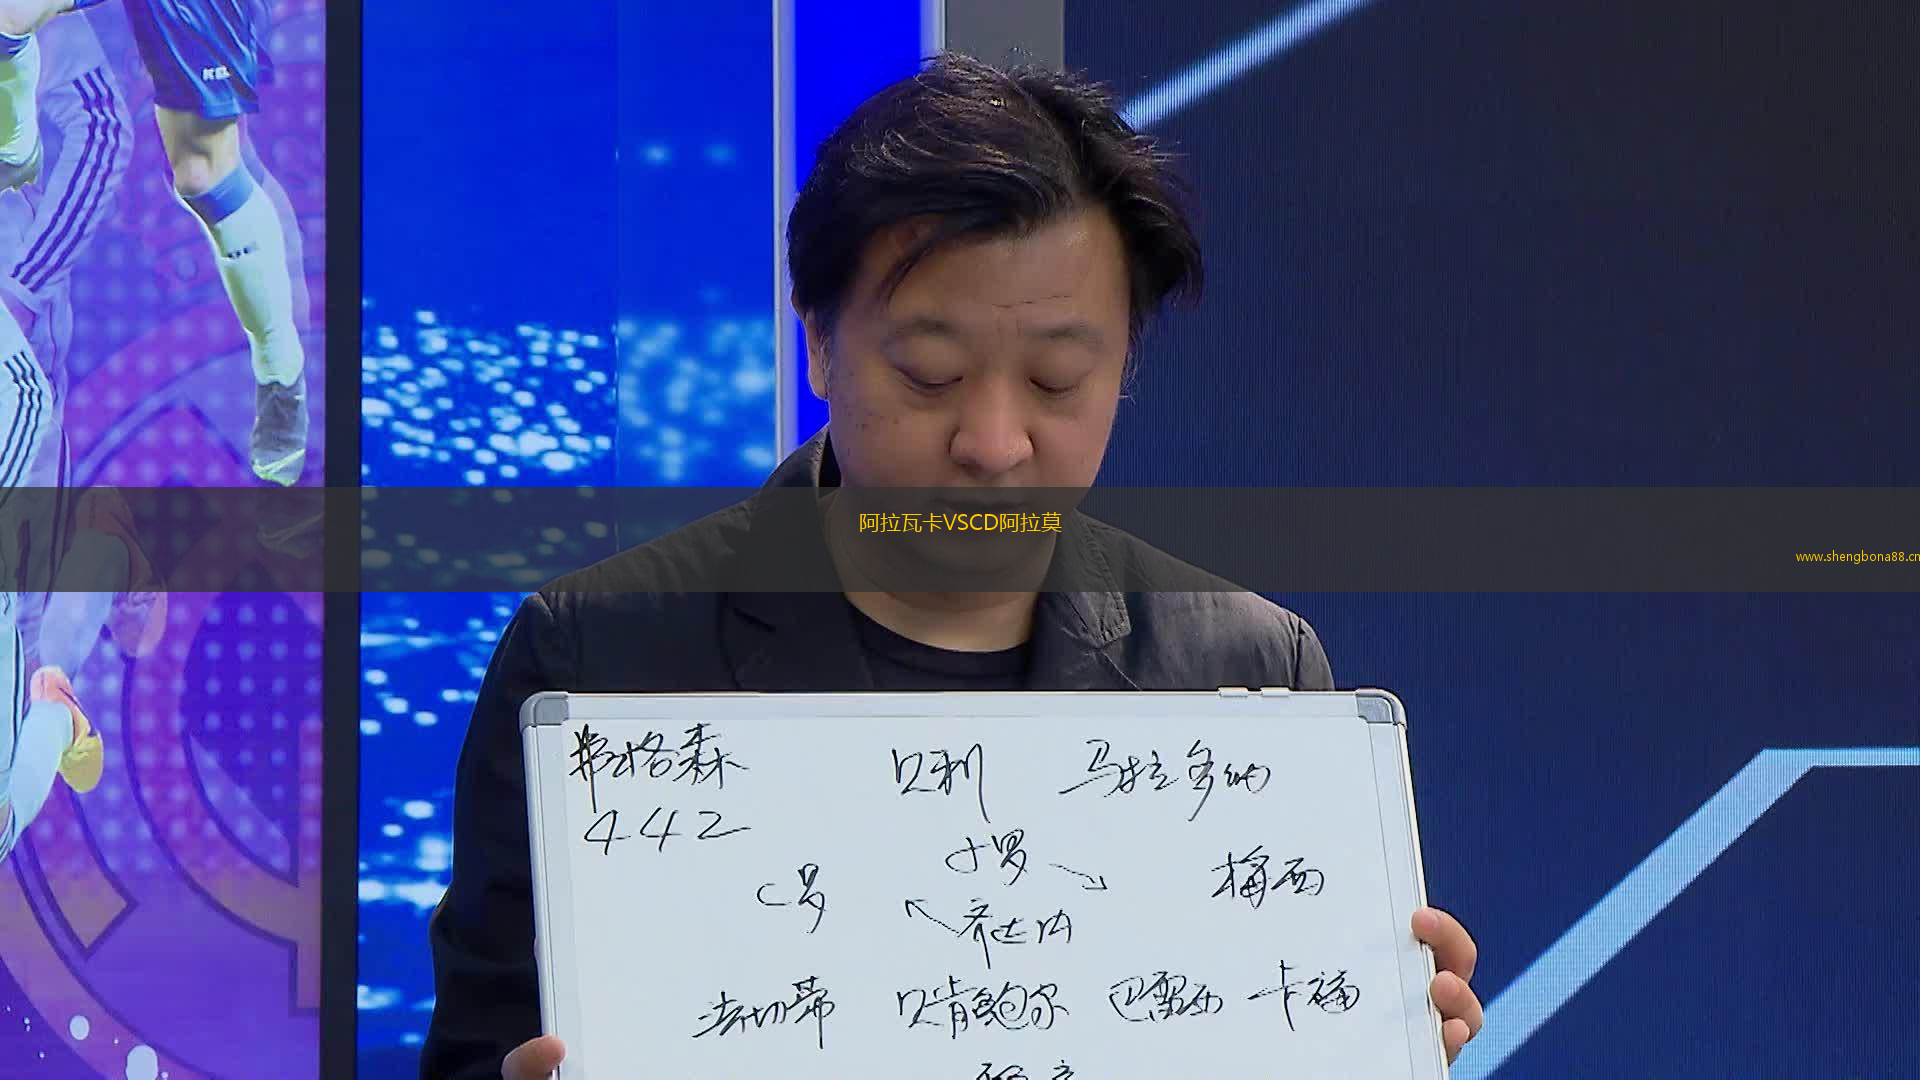 阿拉瓦卡VSCD阿拉莫
www.shengbona88.cn
弗格森 贝利 马拉多纳
442
小罗
C罗 梅西
齐达内
法切蒂 贝肯鲍尔 巴雷西 卡福